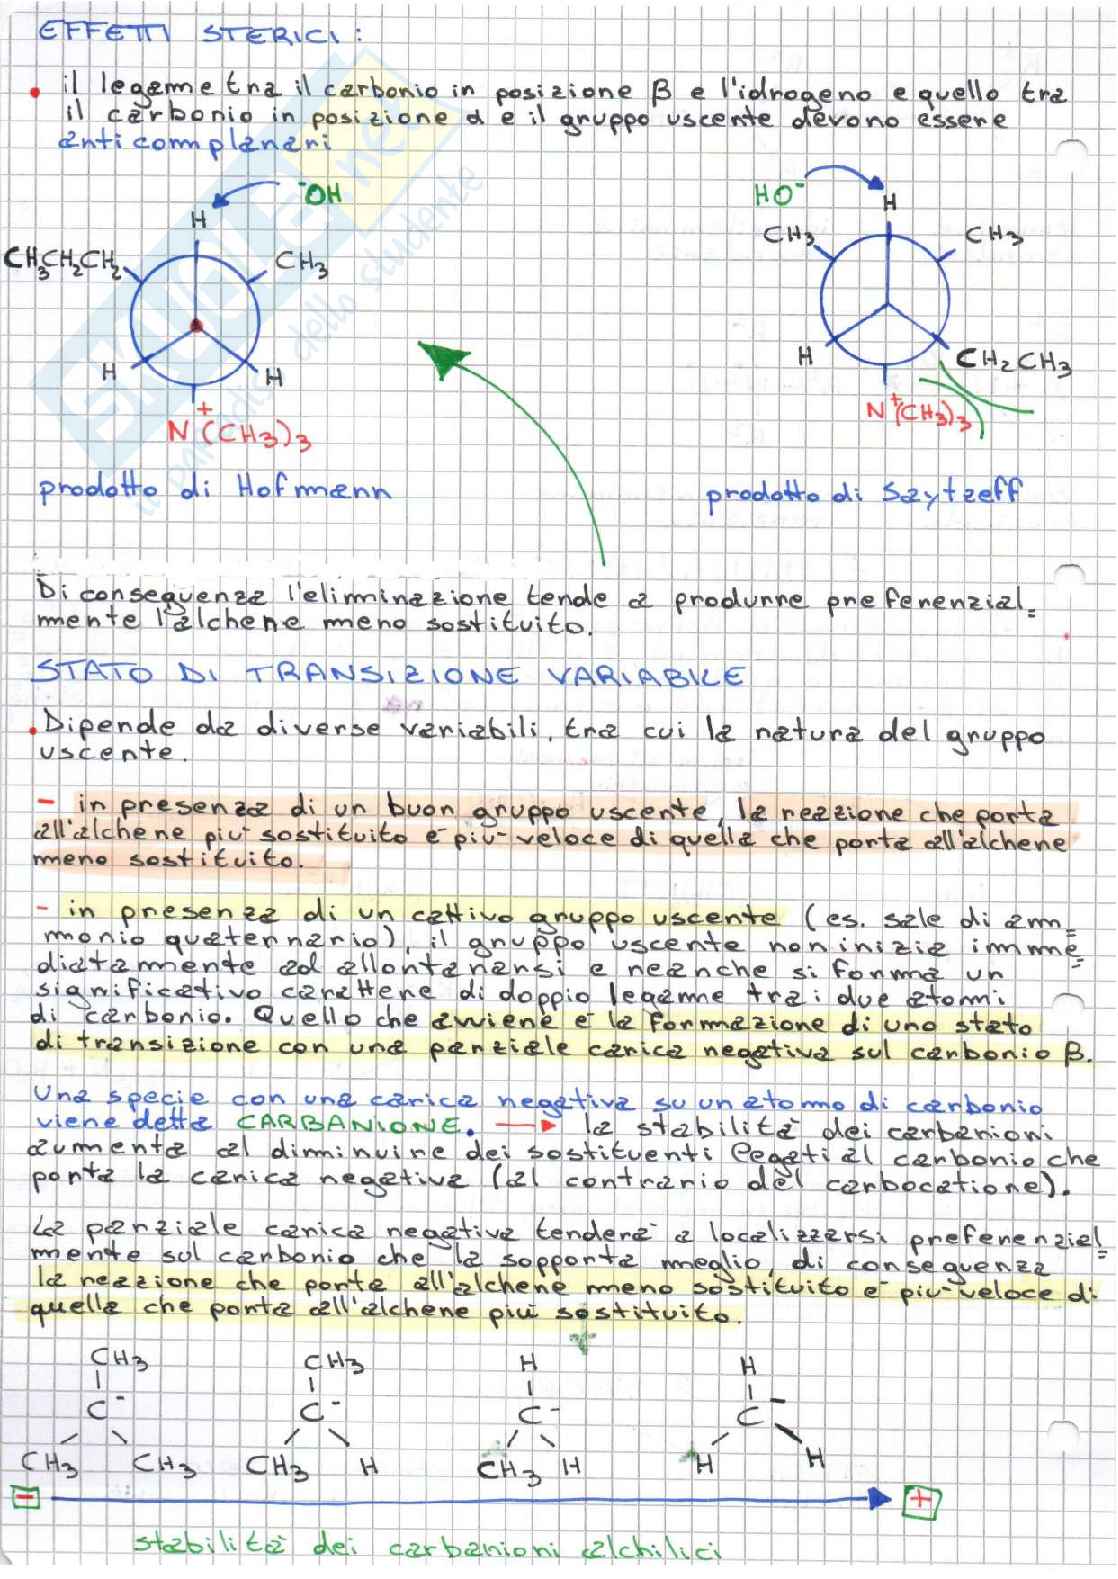 EFFETTI STERICI:
• il legame tra il carbonio in posizione β e l'idrogeno e quello tra
il carbonio in posizione α e il gruppo uscente devono essere
anti complanari
⁻OH
HO⁻
H
H
CH₃CH₂CH₂
CH₃
CH₃
CH₃
H
H
H
CH₂CH₃
N⁺(CH₃)₃
N⁺(CH₃)₃
prodotto di Hofmann
prodotto di Saytzeff
Di conseguenza l'eliminazione tende a produrre preferenzial=
mente l'alchene meno sostituito.
STATO DI TRANSIZIONE VARIABILE
• Dipende da diverse variabili, tra cui la natura del gruppo
uscente.
- in presenza di un buon gruppo uscente, la reazione che porta
all'alchene più sostituito è più veloce di quella che porta all'alchene
meno sostituito.
- in presenza di un cattivo gruppo uscente (es. sale di am=
monio quaternario), il gruppo uscente non inizia imme=
diatamente ad allontanarsi e neanche si forma un
significativo carattere di doppio legame tra i due atomi
di carbonio. Quello che avviene è la formazione di uno stato
di transizione con una parziale carica negativa sul carbonio β.
Una specie con una carica negativa su un atomo di carbonio
viene detta CARBANIONE. → la stabilità dei carbanioni
aumenta al diminuire dei sostituenti legati al carbonio che
porta la carica negativa (al contrario del carbocatione).
La parziale carica negativa tenderà a localizzarsi preferenzial=
mente sul carbonio che la sopporta meglio, di conseguenza
la reazione che porta all'alchene meno sostituito è più veloce di
quella che porta all'alchene più sostituito.
CH₃
CH₃
H
H
C⁻
C⁻
C⁻
C⁻
CH₃
CH₃
CH₃
H
CH₃
H
H
H
-
+
stabilità dei carbanioni alchilici